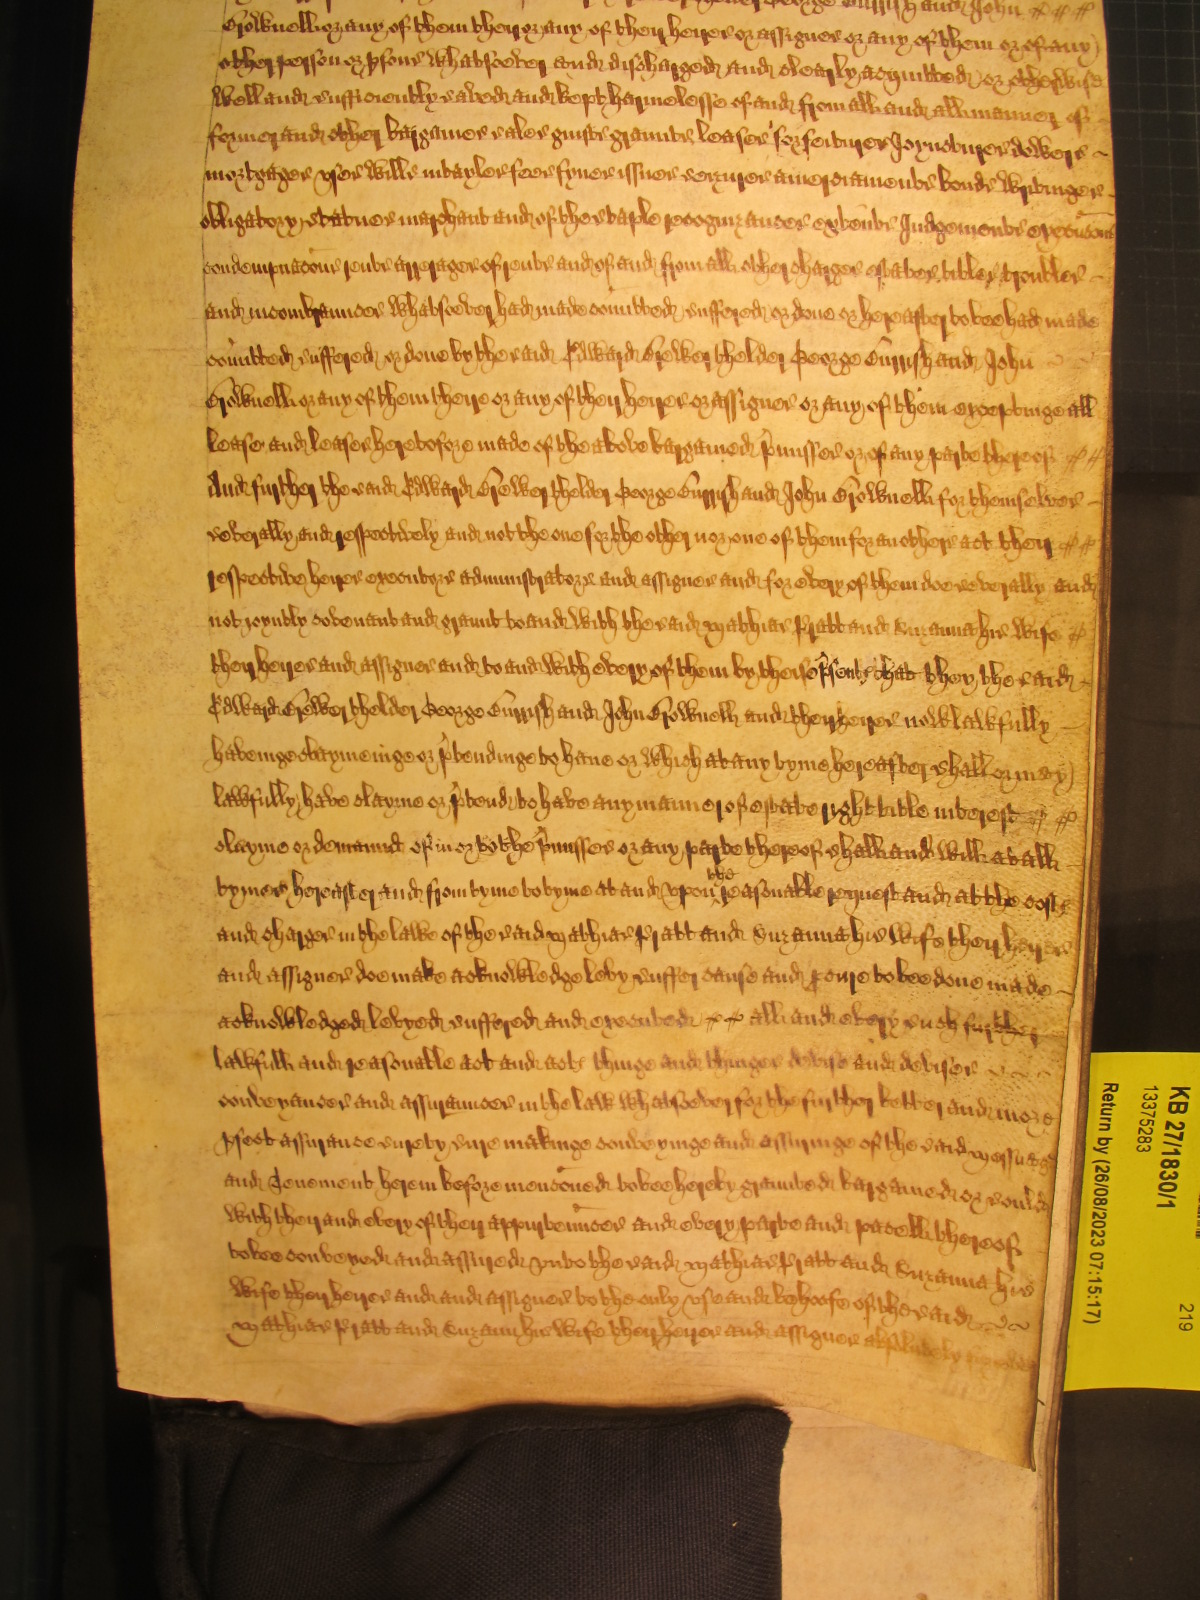 George Currish and John
Crownell or any of them their or any of their heires or assignes or any of them or of any
other person or psons whatsoever and discharged and clearly acquitted or otherwise
well and sufficiently saved and kept harmelesse of and from all and all manner of
former and other bargaines sales guifts graunts leases forfeitures Joynctures dowers
mortgages uses wills intayles fees fynes issues seizures amerciaments bonds writinges
obligatory statutes marchant and of the staple recognizances extents Judgements execucons
condempnacons rents arrerages of rents and of and from all other charges estates titles troubles
and incombrances whatsoever had made comitted suffered or done or hereafter to bee had made
comitted suffered or done by the said Edward Crewes thelder George Currish and John
Crownell or any of them theire or any of their heires or assignes or any of them exceptinge all
lease and leases heretofore made of the above bargained pmisses or of any parte thereof
And further the said Edward Crewes thelder George Currish and John Crownell for themselves
severally and respectively and not the one for the other nor one of them for anothers act their
respective heires executors administrators and assignes and for every of them doe severally and
not joyntly covenant and graunt to and with the said Mathias Pratt and Suzanna his wife
their heires and assignes and to and with every of them by theise psents that they the said
Edward Crewes thelder George Currish and John Crownell and their heires now lawfully
haveinge claymeinge or ptendinge to have or which at any tyme hereafter shall or may
lawfully have clayme or ptend to have any manner of estate right title interest
clayme or demaund of in or to the pmisses or any parte thereof shall and will at all
tymes hereafter and from tyme to tyme at and upon the reasonable request and at the costs
and charges in the lawe of the said Mathias Pratt and Suzanna his wife their heires
and assignes doe make acknowledge levy suffer cause and pcure to bee done made
acknowledged levyed suffered and executed all and every such further
lawfull and reasonable act and acts thinge and thinges devise and devises
conveyances and assurances in the law whatsoever for the further better and more
pfect assurance surety sure makinge conveyinge and assuringe of the said messuage
and Tenement herein before menconed to bee hereby graunted bargained or sould
with their and every of their appurtenances and every parte and pacell thereof
to bee conveyed and assured unto the said Mathias Pratt and Suzanna his
wife their heires and and assignes to the only use and behoofe of the said
Mathias Pratt and Suzann his wife their heires and assignes absolutely
KB 27/1830/1
13375283
219
Return by (26/08/2023 07:15:17)